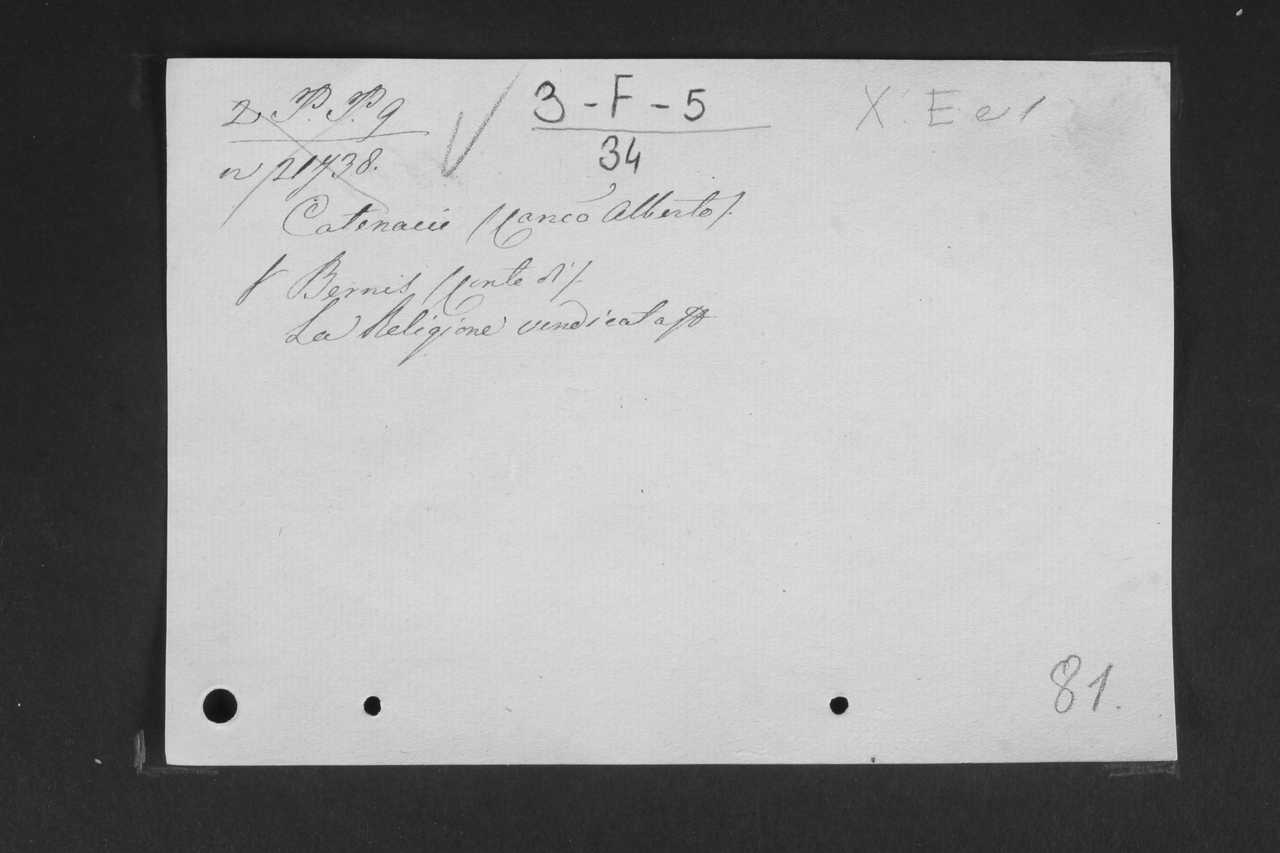 2 P. P. 9
n 21738.
3 - F - 5
34
X. E e 1
Catenacci (Canco Alberto).
f Bernis (Conte di).
La Religione vindicata
81.